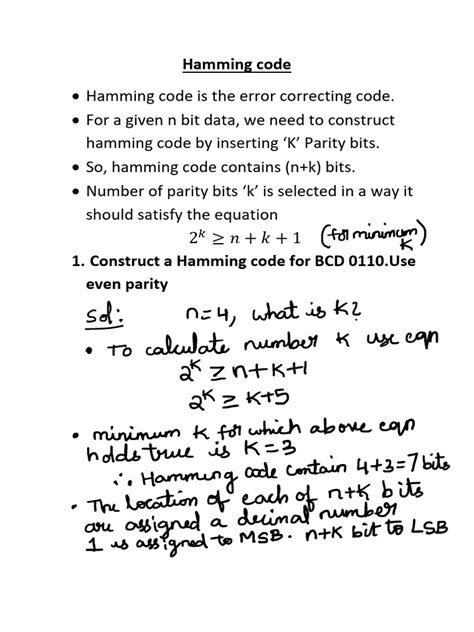 Hamming code
• Hamming code is the error correcting code.
• For a given n bit data, we need to construct
hamming code by inserting ‘K’ Parity bits.
• So, hamming code contains (n+k) bits.
• Number of parity bits ‘k’ is selected in a way it
should satisfy the equation
2^k ≥ n + k + 1 (for minimum K)
1. Construct a Hamming code for BCD 0110.Use
even parity
Sol: n=4, what is K?
• To calculate number K use eqn
2^K ≥ n+K+1
2^K ≥ K+5
• minimum K for which above eqn
holds true is K=3
∴ Hamming code contain 4+3=7 bits
• The location of each of n+K bits
are assigned a decimal number
1 is assigned to MSB. n+K bit to LSB